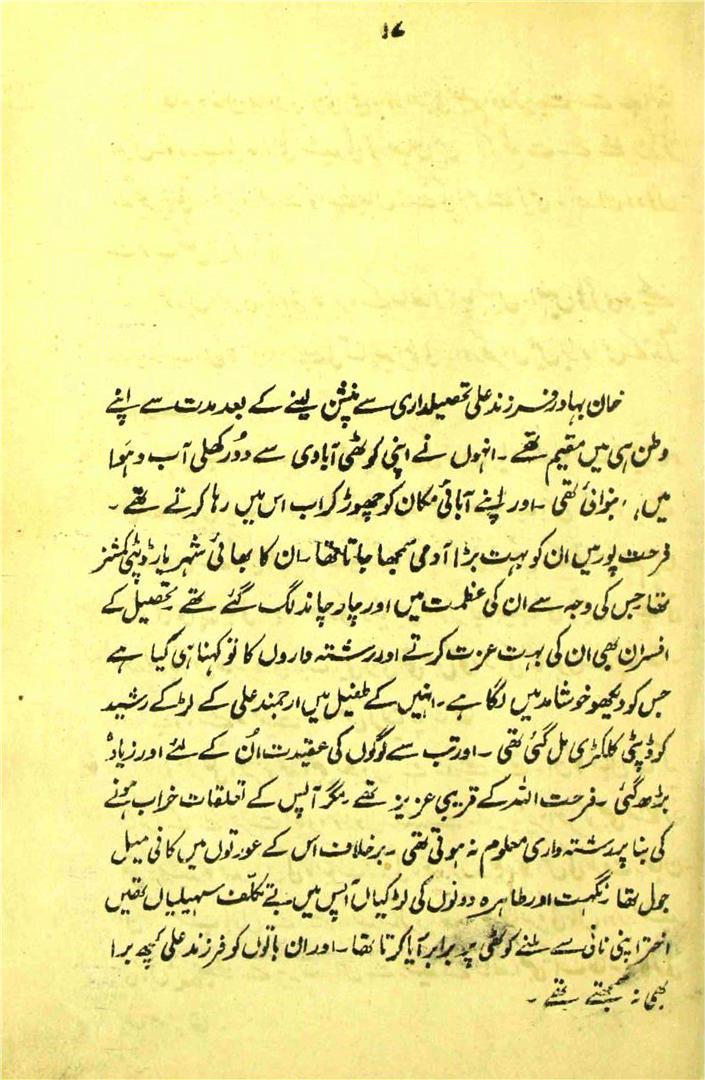 ۱۶
خان بہادر فرزند علی تحصیلداری سے پنشن لینے کے بعد مدت سے اپنے
وطن ہی میں مقیم تھے ۔ انہوں نے اپنی کوٹھی آبادی سے دُور کھلی آب و ہَوا
میں بنوائی تھی ۔ اور اپنے آبائی مکان کو چھوڑ کر اب اس میں رہا کرتے تھے ۔
فرحت پور میں ان کو بہت بڑا آدمی سمجھا جاتا تھا ۔ ان کا بھائی شہر یار ڈپٹی کمشنر
تھا جس کی وجہ سے ان کی عظمت میں اور چار چاند لگ گئے تھے ۔ تحصیل کے
افسران بھی ان کی بہت عزت کرتے اور رشتہ داروں کا تو کہنا ہی کیا ہے
جس کو دیکھو خوشامد میں لگا ہے ۔ انہیں کے طفیل میں ارجمند علی کے لڑکے رشید
کو ڈپٹی کلکٹری مل گئی تھی ۔ اور تب سے لوگوں کی عقیدت اُن کے لئے اور زیادہ
بڑھ گئی ۔ فرحت اللہ کے قریبی عزیز تھے مگر آپس کے تعلقات خراب ہونے
کی بنا پر رشتہ داری معلوم نہ ہوتی تھی ۔ برخلاف اس کے عورتوں میں کافی میل
جول تھا ۔ نگہت اور طاہرہ دونوں کی لڑکیاں آپس میں بے تکلّف سہیلیاں تھیں
اختر اپنی نانی سے ملنے کوٹھی پر برابر آیا کرتا تھا ۔ اور ان باتوں کو فرزند علی کچھ برا
بھی نہ سمجھتے تھے ۔